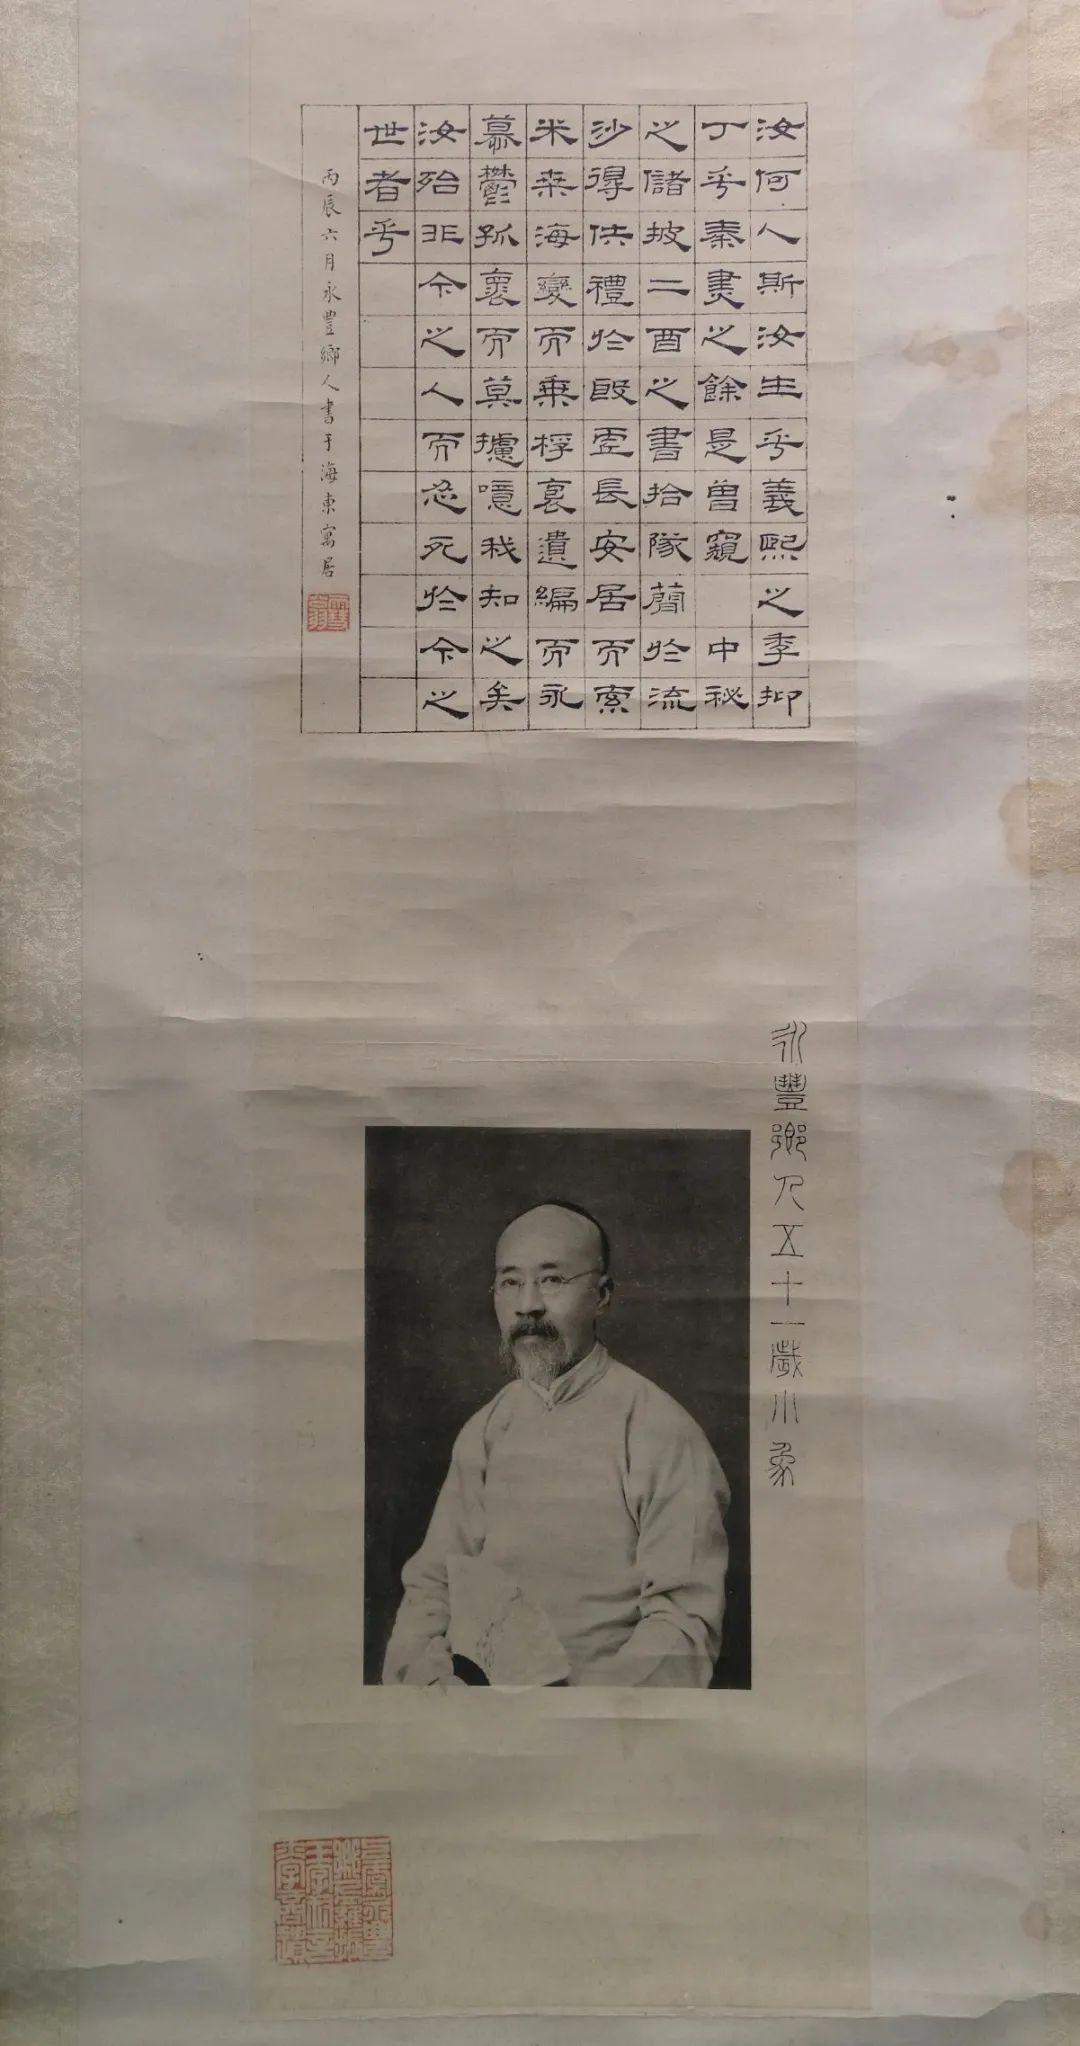 汝何人斯汝生乎義熙之季抑
丁乎秦㶳之餘是曾窺 中秘
之儲披二酉之書拾隊簡於流
沙得佚禮於殷虛長安居而索
米桒海變而乘桴裒遺編而永
慕鬱孤褱而莫攄噫我知之矣
汝殆非今之人而忍死於今之
世者乎
丙辰六月永豐鄉人書于海東寓居
雪翁
永豐鄉人五十一歲小象